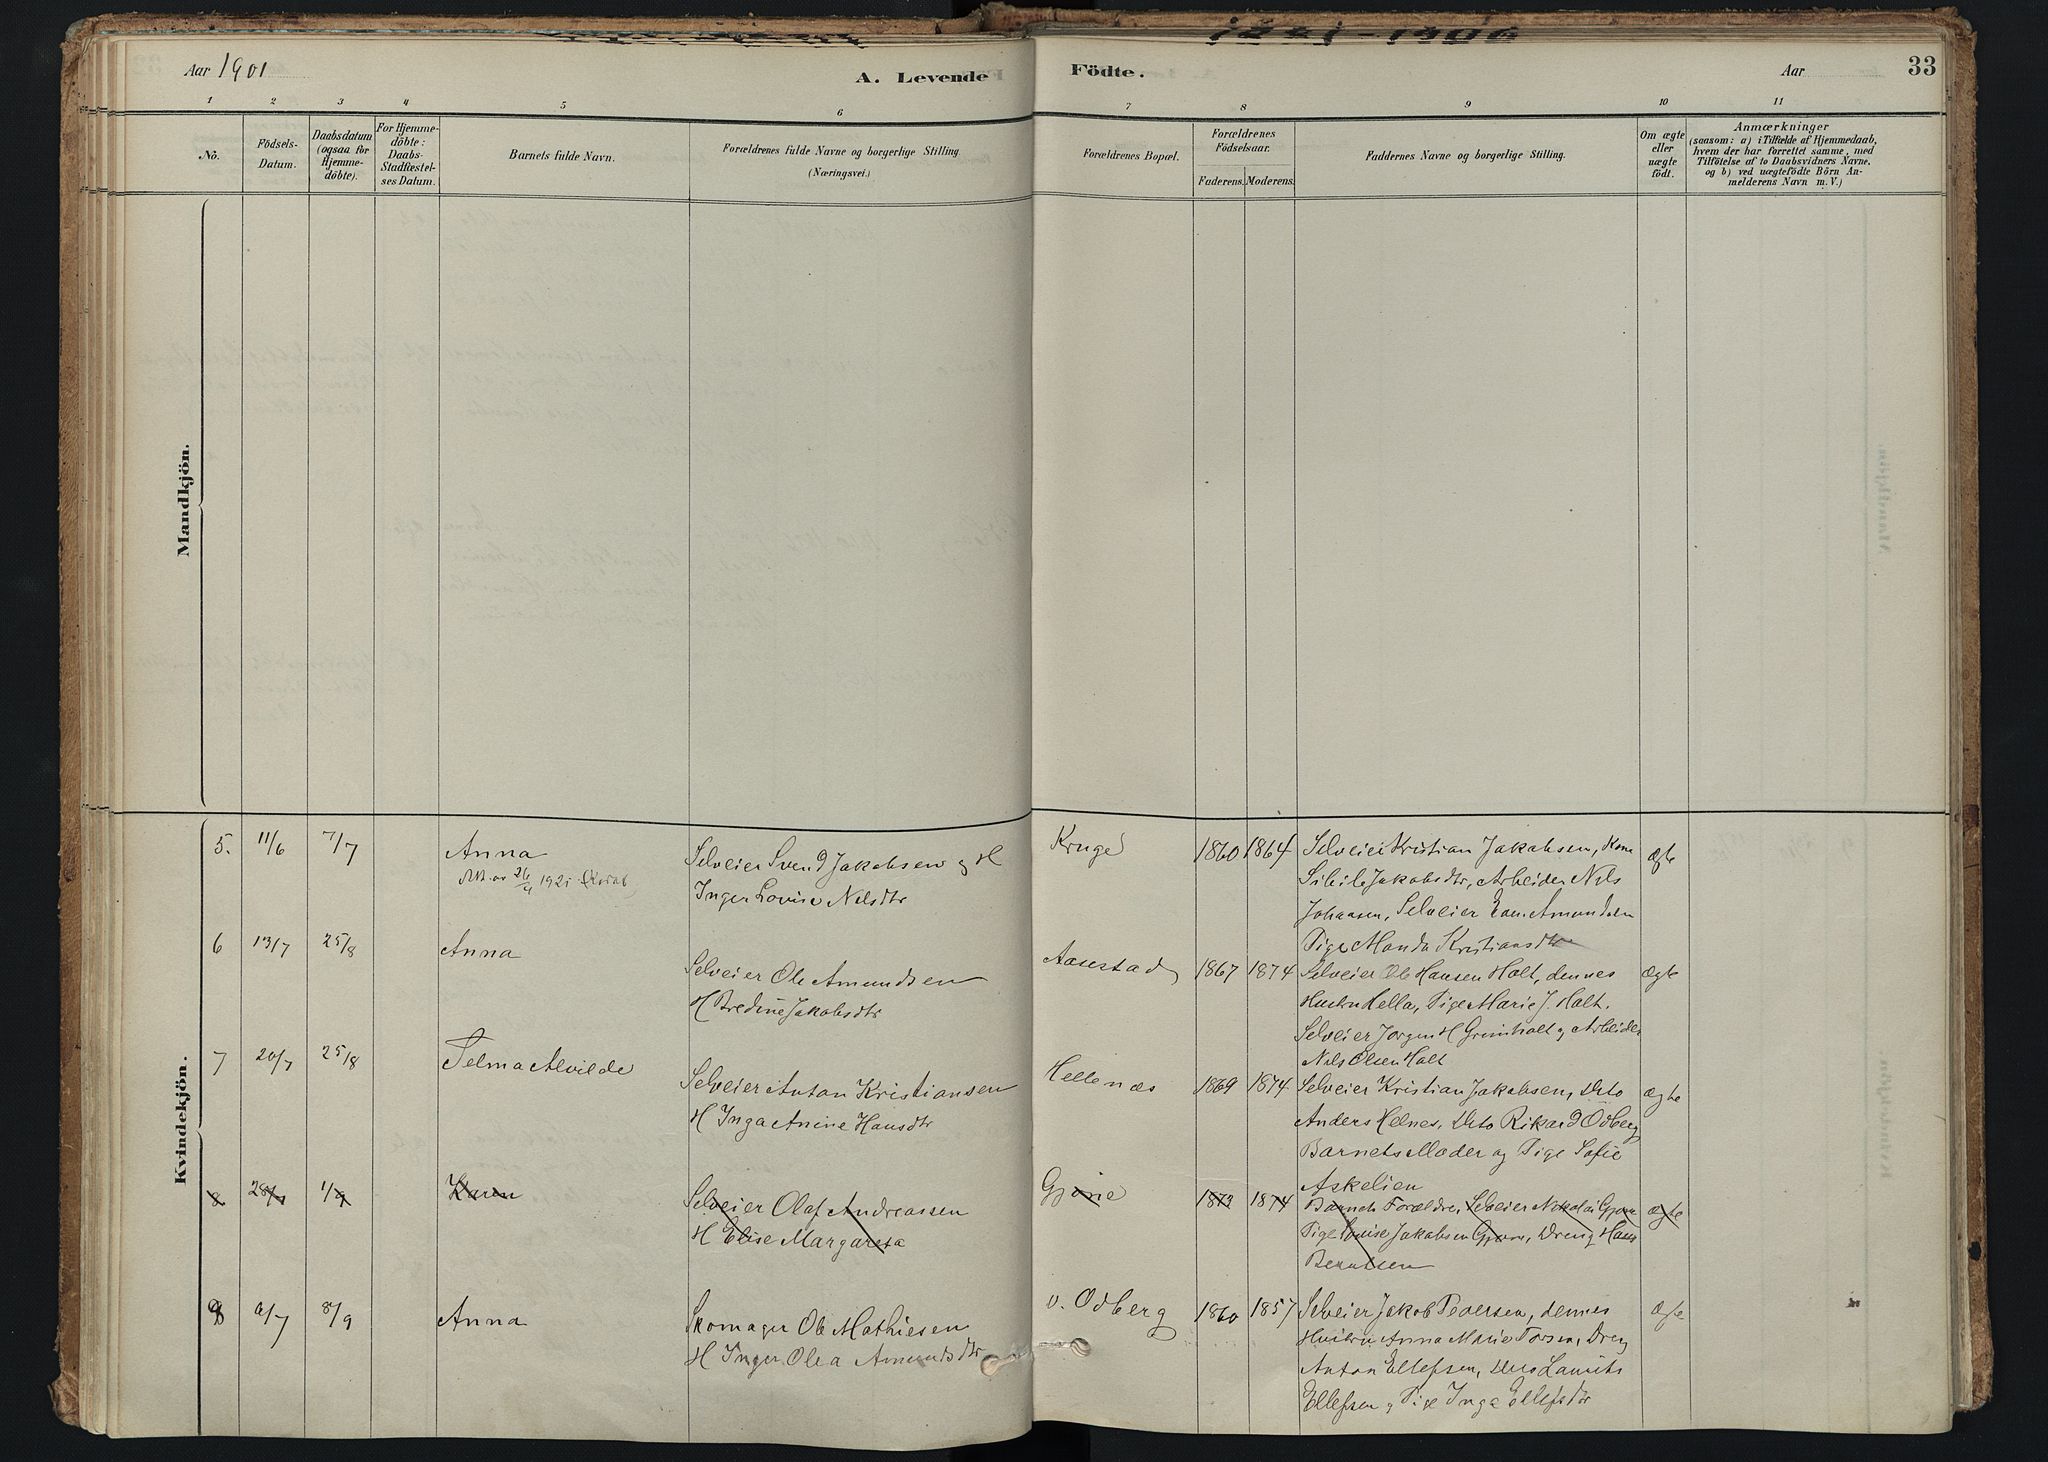 1881-1906
Aar 1901
A. Levende
Födte.
Aar
33
1 2 3 4 5 6 7 8 9 10 11
No.
Födsels-
Datum.
Daabsdatum
(ogsaa for
Hjemme-
döbte).
For Hjemme-
döbte:
Daabs-
Stadfæstel-
ses Datum.
Barnets fulde Navn.
Forældrenes fulde Navne og borgerlige Stilling
(Næringsvei.)
Forældrenes Bopæl.
Forældrenes
Födselsaar.
Faderens. Moderens.
Faddernes Navne og borgerlige Stilling.
Om ægte
eller
uægte
födt.
Anmærkninger
(saasom: a) i Tilfælde af Hjemmedaab,
hvem der har forrettet samme, med
Tilföielse af to Daabsvidners Navne,
og b) ved uægtefödte Börn An-
melderens Navn m. V.)
Mandkjön.
Kvindekjön.
5. 11/6 7/7 Anna
Att. av 26/4 1921
Selveier Svend Jakobsen og H
Inger Lovise Nilsdtr
Kruge 1860 1864
Selveier Kristian Jakobsen, Kone
Sibile Jakobsdtr, Arbeider Nils
Johansen, Selveier Even Amundsen
Pige Manda Kristiansdtr
ægte
6 13/7 25/8 Anna
Selveier Ole Amundsen
H Bredine Jakobsdtr
Aasestad 1867 1874
Selveier Ole Hansen Holt, dennes
Hustru Hella, Pige Marie J. Holt.
Selveier Jørgen H Grimholt og Arbeider
Nils Olsen Holt
ægte
7 20/7 25/8 Selma Alvilde
Selveier Anton Kristiansen
H Inga Anine Hansdtr
Hellenæs 1869 1874
Selveier Kristian Jakobsen, Dito
Anders Helnes, Dito Rikard Odberg
Barnets Moder og Pige Sofie
Askelien
ægte
8 28/7 1/9 Karen
Selveier Olaf Andreassen
H Elise Margareta
Gjøne 1873 1874
Barnets Forældre, Selveier Nikolai Gjøne
Pige Louise Jakobsen Gjøne, Dreng Hans
Berntsen
ægte
8 9/7 8/9 Anna
Skomager Ole Mathiesen
H Inger Olea Amundsdtr
v. Odberg 1860 1857
Selveier Jakob Pedersen, dennes
Hustru Anna Marie Torsen, Dreng
Anton Ellefsen, Dito Laurits
Ellefsen og Pige Inga Ellefsdtr
ægte